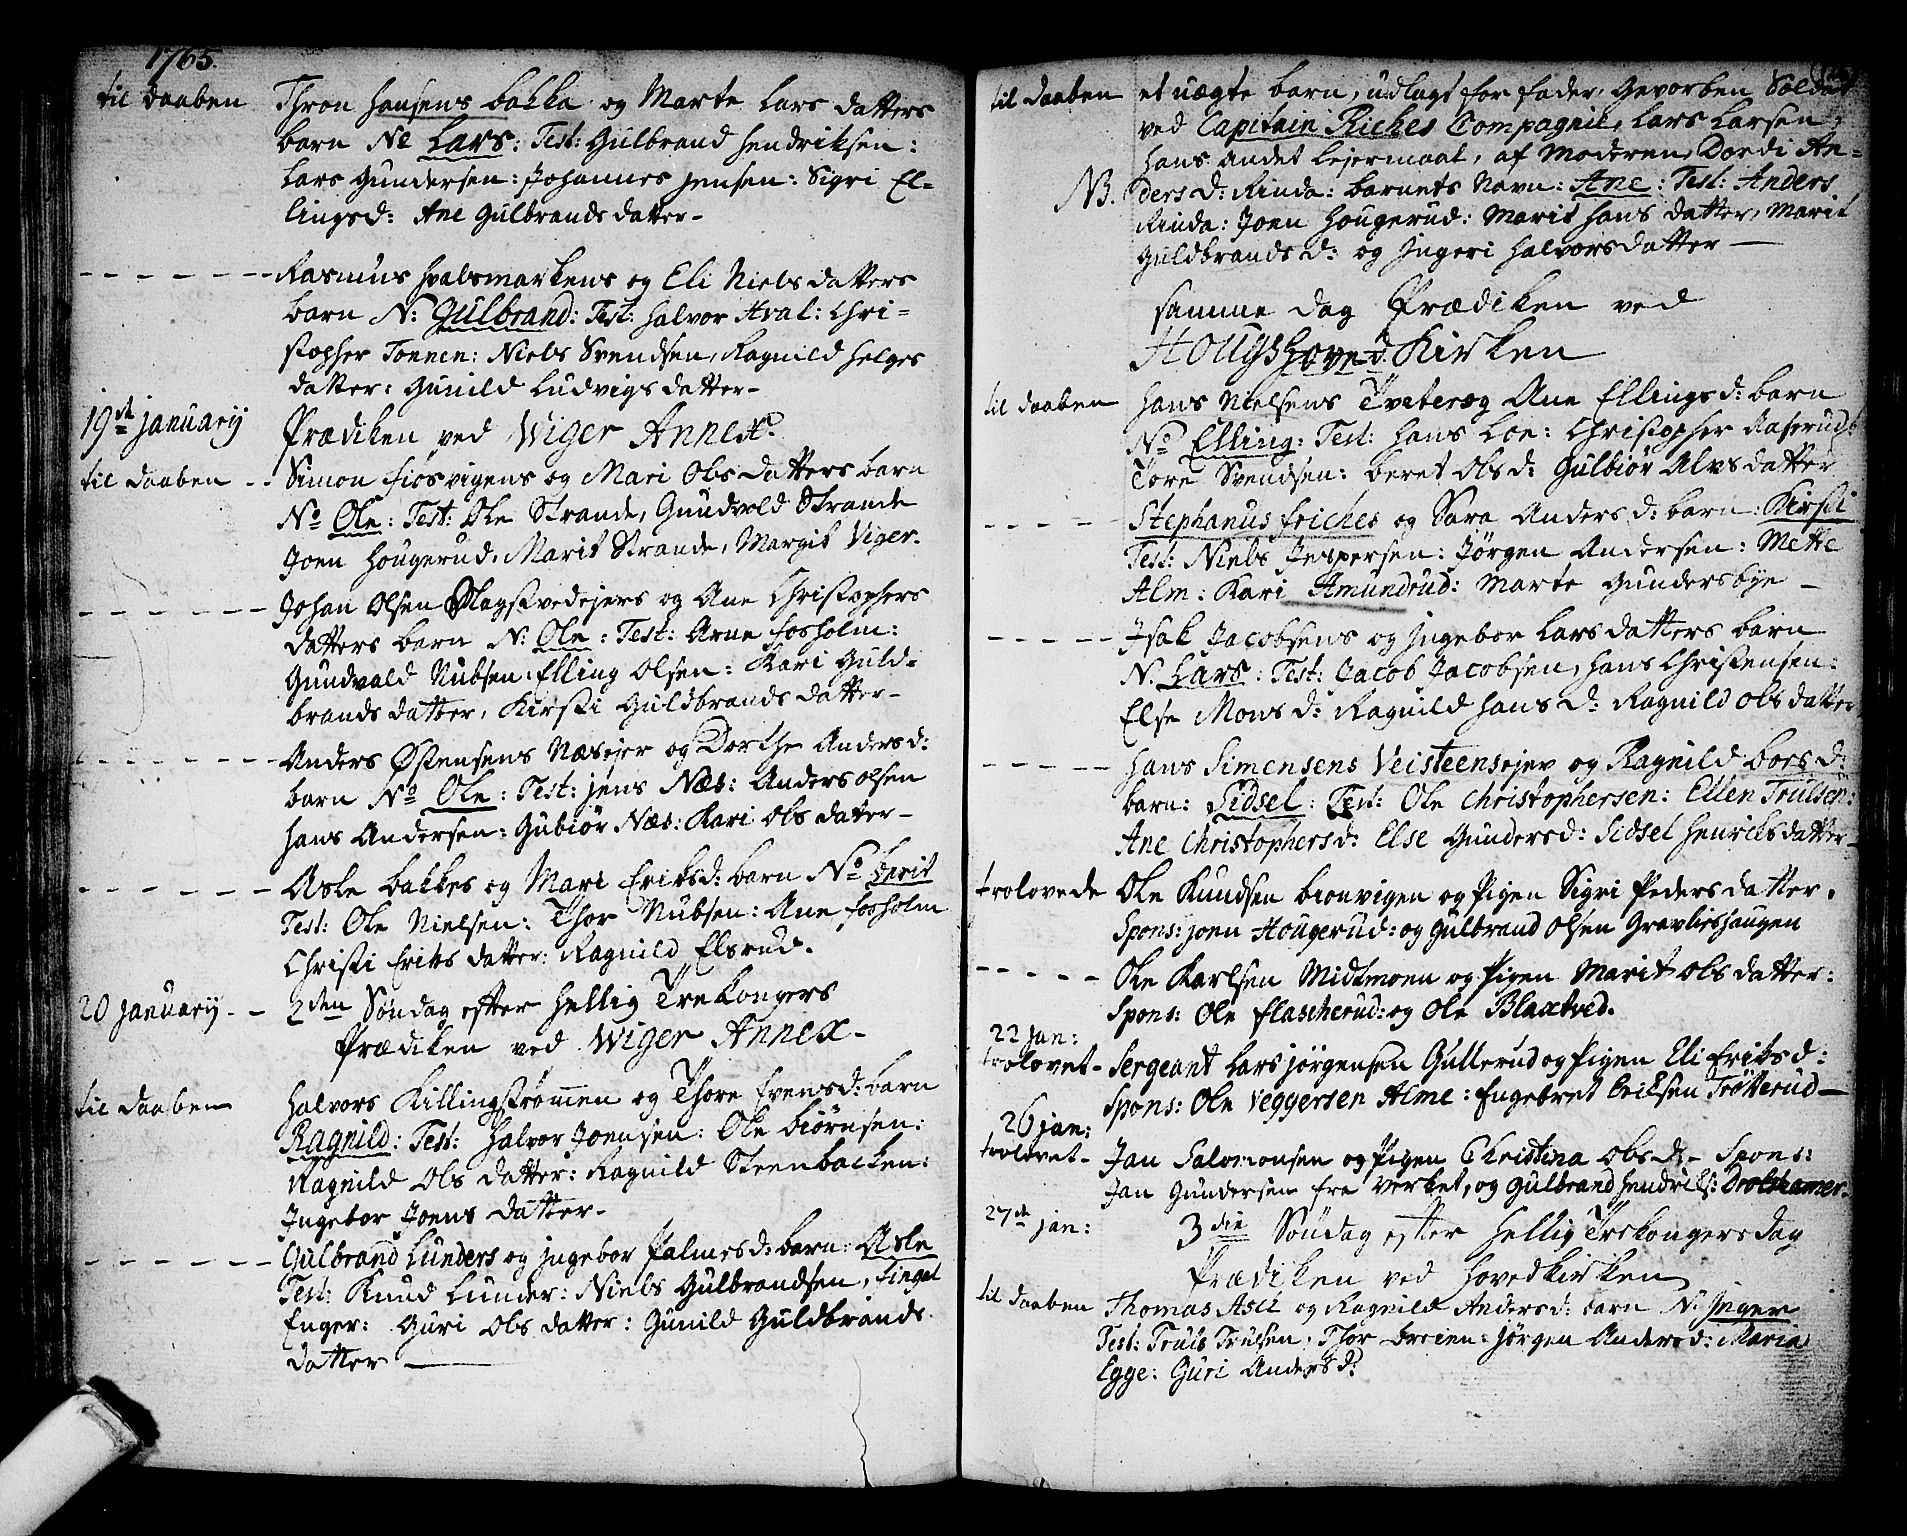 1765.
til Daaben Thron Hansens Bakka og Marte Lars datters
barn Ne Lars: Test: Gulbrand Hendriksen:
Lars Gundersen: Johannes Jensen: Sigri El=
lingsd: Ane Gulbrands datter-
Rasmus Hvalsmarkens og Eli Niels datters
barn N: Gulbrand: Test: Halvor Aval: Chri=
stopher Tonnen: Niels Svendsen, Ragnild Helges
datter: Gunild Ludvigs datter-
19de January Prædiken ved Wiger Annex
til Daaben Simon Fiosvigens og Mari Ols datters barn
No Ole: Test: Ole Strande, Gundvold Strande
Joen Hougerud, Marit Strande, Margit Viger.
Johan Olsen Magstvedejers og Ane Christophers
datters barn N: Ole: Test: Arne Fosholm:
Gundvald Nubsen: Elling Olsen: Kari Guld=
brands datter, Kirsti Guldbrands datter-
Anders Østensens Næsejer og Dorthe Anders d:
barn No Ole: Test: Jens Næs: Anders Olsen
Hans Andersen: Gubiør Næs: Kari Ols datter-
Asle Bakkes og Mari Eriks d: barn No Berit
Test: Ole Nielsen: Thor Nubsen: Ane Fosholm
Christi Eriks datter: Ragnild Elsrud.
20 January 2den Søndag efter Hellig Tre Kongers
Prædiken ved Wiger Annex-
til Daaben Halvors Killingstrømmen og Thore Evens d: barn
Ragnild: Test: Halvor Joensen: Ole Biørnsen:
Ragnild Ols datter: Ragnild Steenbacken:
Ingebor Joens datter-
Gulbrand Lunders og Ingebor Palmes d: barn: Asle
Test: Knud Lunder: Niels Gulbrandsen, Fingal
Enger: Guri Ols datter: Gunild Guldbrands
datter
til Daaben et uægte barn, udlagt for fader, Gevorben Soldat
ved Capitain Riches Compagnie, Lars Larsen,
hans andet Lejermaal, af Moderen, Dordi An=
NB. ders d: Rinda: barnets Navn: Ane: Test: Anders
Rinda: Joen Hougerud: Marit Hans datter, Marit
Guldbrands d: og Ingeri Halvors datter
samme dag Prædiken ved
Hougshoved Kirken
til Daaben Hans Nielsens Tveter og Ane Ellings d: barn
No Elling: Test: Hans Loe: Christopher Raserud:
Tore Svendsen: Beret Ols d: Gulbiør Alvs datter
Stephanus Friches og Sara Anders d: barn: Kirsti
Test: Niels Jespersen: Jørgen Andersen: Mette
Alm: Kari Amundrud: Marte Gundersbye
Isak Jacobsens og Ingebor Lars datters barn
N. Lars: Test: Jacob Jacobsen, Hans Christensen:
Else Mons d: Ragnild Hans d: Ragnild Ols datter
Hans Simensens Veisteensejer og Ragnild Boes d:
barn: Sidsel: Test: Ole Christophersen: Ellen Trulsen:
Ane Christophers d: Else Gunders d: Sidsel Henriks datter-
trolovede Ole Knudsen Bionvigen og Pigen Sigri Peders datter.
Spons: Joen Hougerud: og Gulbrand Olsen Gravlieshaugen
Ole Karlsen Midtmoen og Pigen Marit Ols datter:
Spons: Ole Flaskerud: og Ole Blaxtved.
22 Jan:
trolovet- Sergeant Lars Jörgensen Gullerud og Pigen Eli Eriks d:
Spons: Ole Veggersen Alme: Engebret Erilsen Trötterud-
26 Jan:
trolovet- Jan Salomonsen og Pigen Christina Ols d:- Spons:
Jan Gundersen fra Verket, og Gulbrand Hendriks: Drolshamer-
27de Jan: 3die Søndag efter Hellig Tre Kongers dag
Prædiken ved Hovedkirken
til Daaben Thomas Asli og Ragnild Anders d: barn N: Inger
Test: Truls Trulsen, Thor Breien: Jørgen Anders d: Maria
Egge: Guri Anders d: